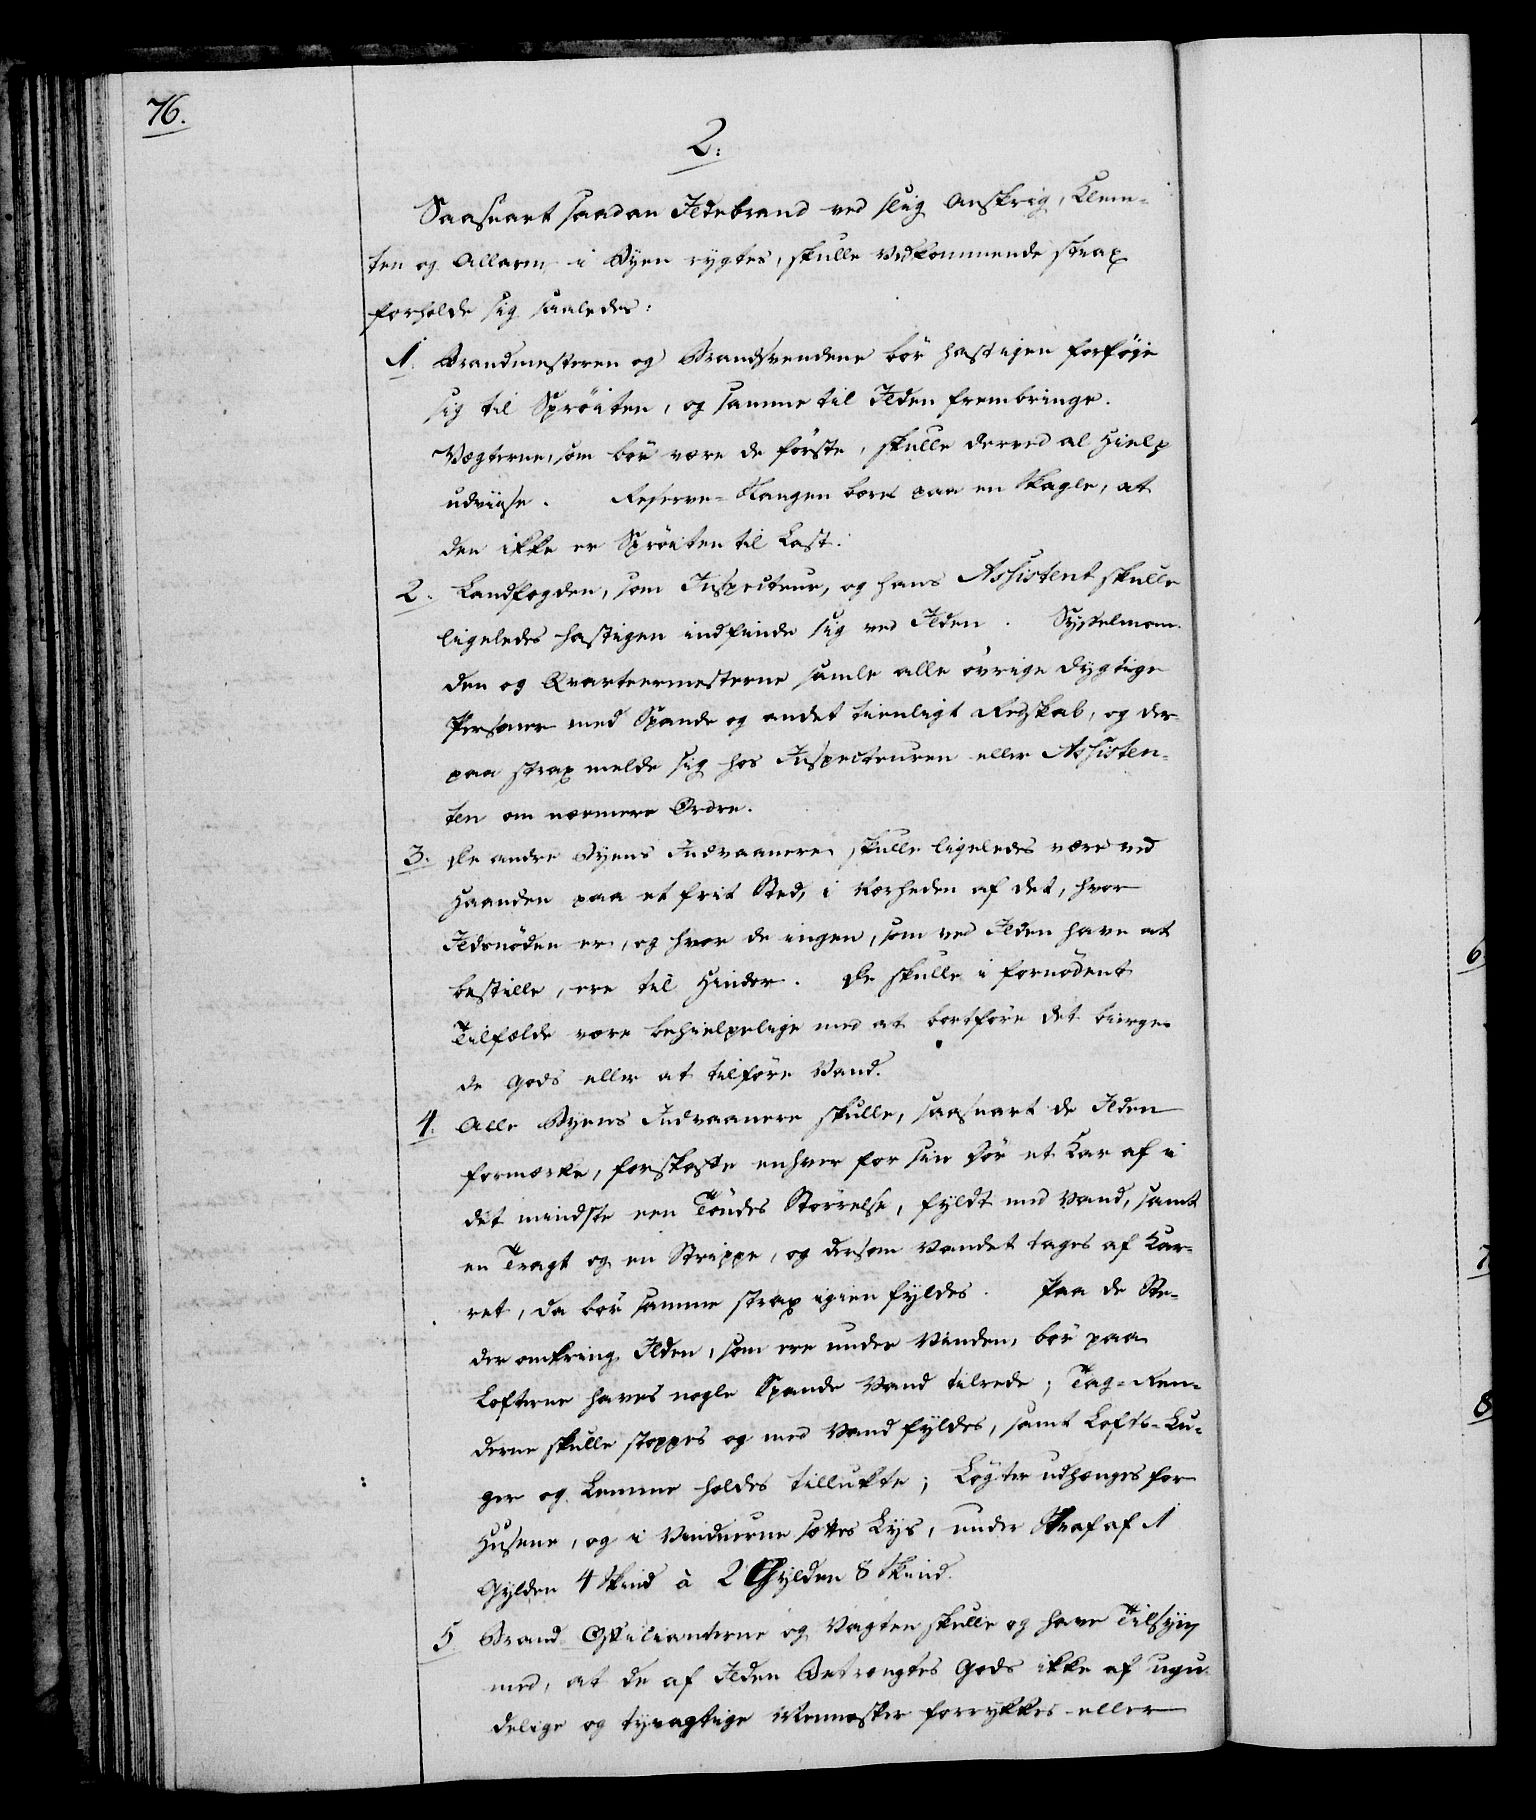 76.
2.
Saasnart saadan Ildebrand ved slig Anskrig, Klem-
ten og Allarm i Byen rygtes, skulle Vedkommende strax
forholde sig saaledes:
1. Brandmesteren og Brandsvendene bör hastigen forföje
sig til Spröiten, og samme til Ilden frembringe.
Vægterne, som bör være de förste, skulle derved al Hielp
udviise. Reserve-Stangen bæres paa en Skagle, at
den ikke er Spröiten til Last.
2. Landfogden, som Inspecteur, og hans Assistent skulle
ligeledes hastigen indfinde sig ved Ilden. Sysselman-
den og Qvarteermesterne samle alle övrige dygtige
Personer med Spande og andet tienligt Redskab, og der-
paa strax melde sig hos Inspecteuren eller Assisten-
ten om nærmere Ordre.
3. De andre Byens Indvaanere skulle ligeledes være ved
Haanden paa et frit Sted, i Nærheden af det, hvor
Ildsnöden er, og hvor de ingen, som ved Ilden have at
bestille, ere til Hinder. De skulle i fornödent
Tilfælde være behielpelige med at bortföre det biærge-
de Gods eller at tilföre Vand.
4. Alle Byens Indvaanere skulle, saasnart de Ilden
formærke, forskaffe enhver for sin Dör et Kar af i
det mindste een Töndes Störrelse, fyldt med Vand, samt
en Tragt og en Strippe, og dersom Vandet tages af Kar-
ret, da bör samme strax igien fyldes. Paa de Ste-
der omkring Ilden, som ere under Vinden, bör paa
Lofterne haves nogle Spande Vand tilrede; Tag-Ren-
derne skulle stoppes og med Vand fyldes, samt Lofts-Lu-
ger og Lemme holdes tillukte; Lögter udhænges for
Husene, og i Vinduerne sættes Lys, under Straf af 1
Gylden 4 Skind à 2 Gylden 8 Skind.
5 Brand-Officianterne og Vagten skulle og have Tilsyn
med, at de af Ilden Betrængtes Gods ikke af ugu-
delige og tyvagtige Mennesker forrykkes eller
6
7
8